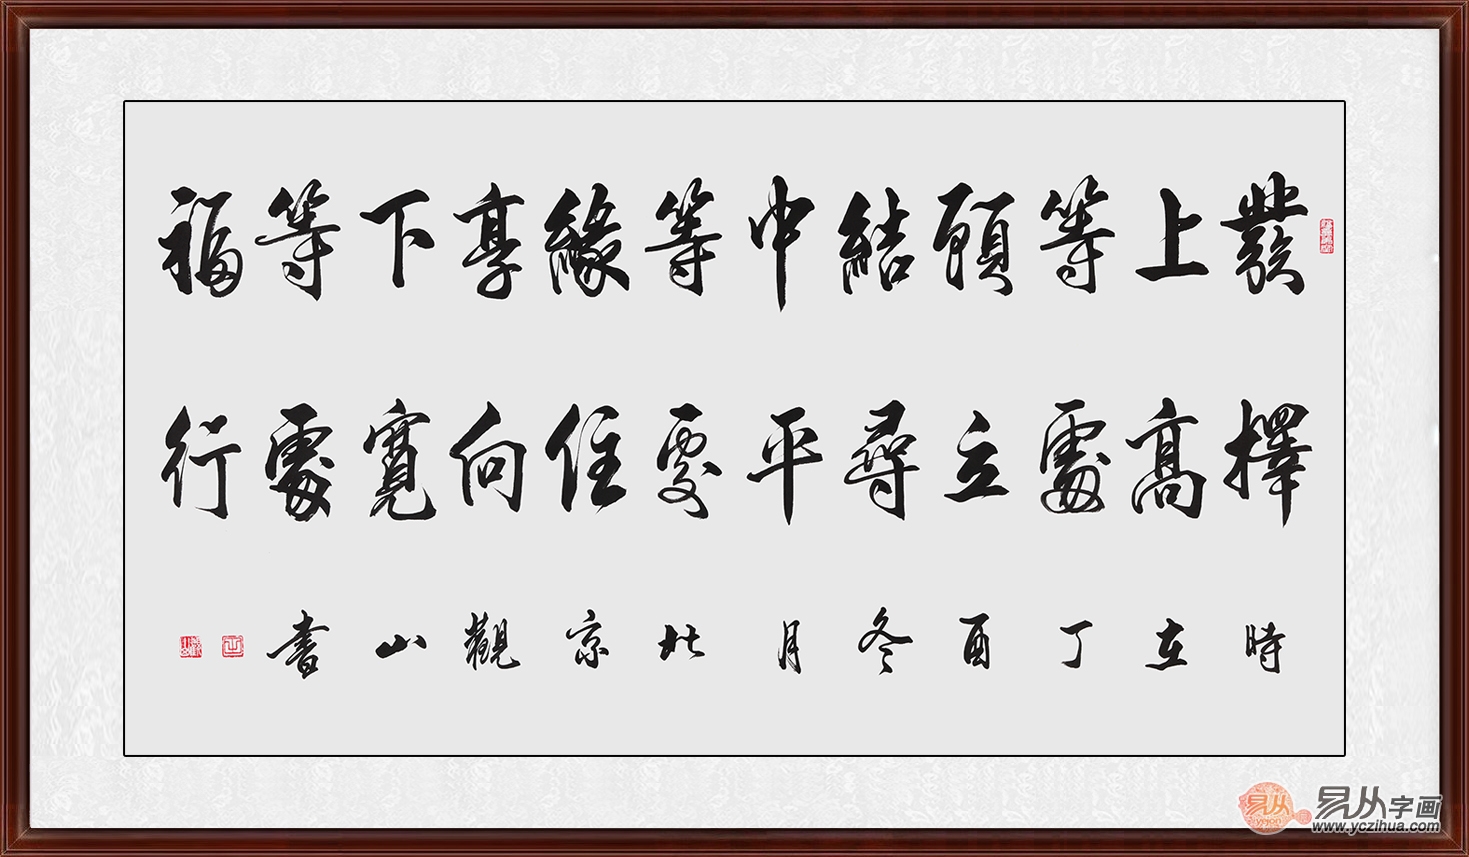 發上等願結中等緣享下等福
擇高處立尋平處住向寬處行
時在丁酉冬月北京觀山書
易从
yojon
易从字画
www.yczihua.com